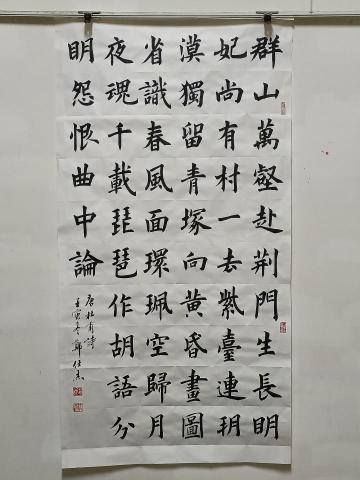 群山萬壑赴荆門生長明
妃尚有村一去紫臺連朔
漠獨留青塚向黃昏畫圖
省識春風面環珮空歸月
夜魂千載琵琶作胡語分
明怨恨曲中論
唐杜甫詩
壬寅冬鄭仕